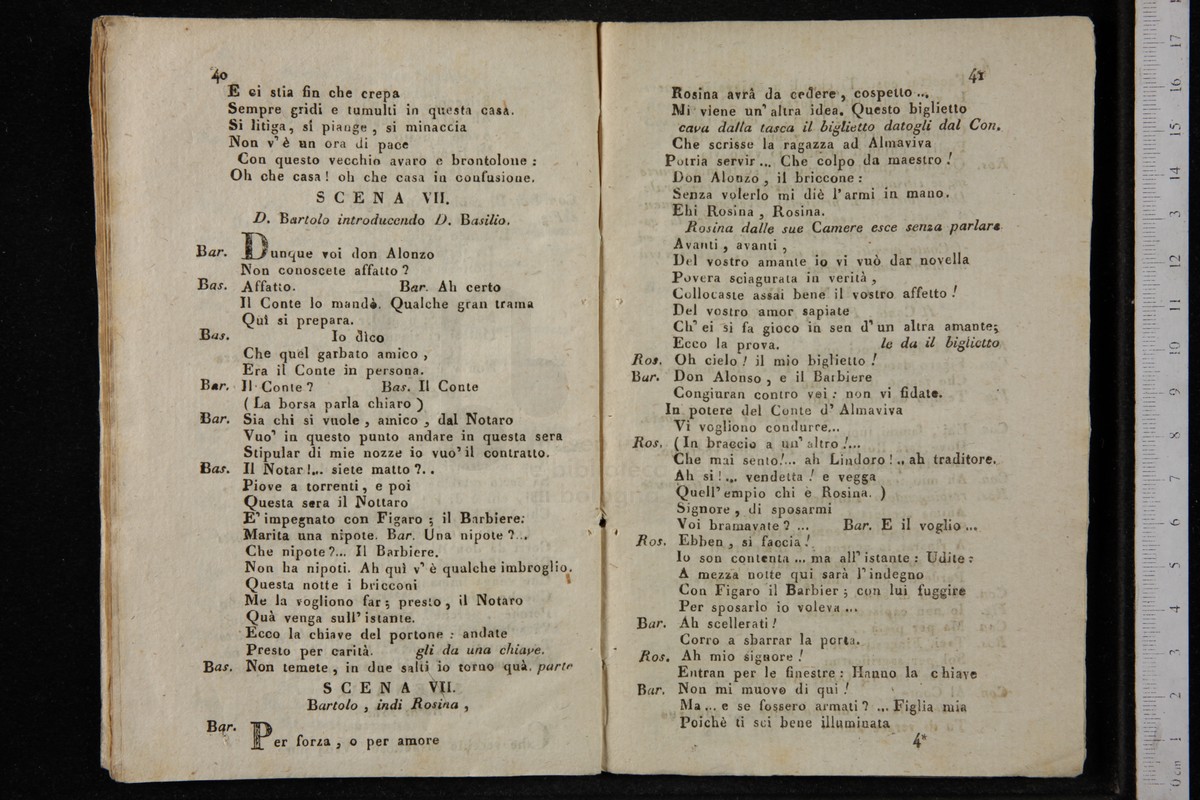 40
E ci stia fin che crepa
Sempre gridi e tumulti in questa casa.
Si litiga, si piange, si minaccia
Non v'è un ora di pace
Con questo vecchio avaro e brontolone:
Oh che casa! oh che casa in confusione.
SCENA VII.
D. Bartolo introducendo D. Basilio.
Bar. Dunque voi don Alonzo
Non conoscete affatto?
Bas. Affatto. Bar. Ah certo
Il Conte lo mandò. Qualche gran trama
Quì si prepara.
Bas. Io dico
Che quel garbato amico,
Era il Conte in persona.
Bar. Il Conte? Bas. Il Conte
(La borsa parla chiaro)
Bar. Sia chi si vuole, amico, dal Notaro
Vuo' in questo punto andare in questa sera
Stipular di mie nozze io vuo' il contratto.
Bas. Il Notar!... siete matto?..
Piove a torrenti, e poi
Questa sera il Nottaro
E' impegnato con Figaro; il Barbiere:
Marita una nipote. Bar. Una nipote?...
Che nipote?... Il Barbiere.
Non ha nipoti. Ah quì v'è qualche imbroglio.
Questa notte i bricconi
Me la vogliono far; presto, il Notaro
Quà venga sull' istante.
Ecco la chiave del portone: andate
Presto per carità. gli da una chiave.
Bas. Non temete, in due salti io torno quà. parte
SCENA VII.
Bartolo, indi Rosina,
Bar. Per forza, o per amore
41
Rosina avrà da cedere, cospetto...
Mi viene un' altra idea. Questo biglietto
cava dalla tasca il biglietto datogli dal Con.
Che scrisse la ragazza ad Almaviva
Potria servir... Che colpo da maestro!
Don Alonzo, il briccone:
Senza volerlo mi diè l'armi in mano.
Ehi Rosina, Rosina.
Rosina dalle sue Camere esce senza parlare
Avanti, avanti,
Del vostro amante io vi vuò dar novella
Povera sciagurata in verità,
Collocaste assai bene il vostro affetto!
Del vostro amor sapiate
Ch' ei si fa gioco in sen d'un altra amante;
Ecco la prova. le da il biglietto
Ros. Oh cielo! il mio biglietto!
Bar. Don Alonso, e il Barbiere
Congiuran contro voi: non vi fidate.
In potere del Conte d' Almaviva
Vi vogliono condurre...
Ros. (In braccio a un' altro!...
Che mai sento!... ah Lindoro!.. ah traditore.
Ah si!... vendetta! e vegga
Quell' empio chi è Rosina.)
Signore, di sposarmi
Voi bramavate?... Bar. E il voglio...
Ros. Ebben, si faccia!
Io son contenta... ma all' istante: Udite:
A mezza notte qui sarà l'indegno
Con Figaro il Barbier; con lui fuggire
Per sposarlo io voleva...
Bar. Ah scellerati!
Corro a sbarrar la porta.
Ros. Ah mio signore!
Entran per le finestre: Hanno la chiave
Bar. Non mi muovo di qui!
Ma... e se fossero armati?... Figlia mia
Poichè ti sei bene illuminata
4*
0 cm 1 2 3 4 5 6 7 8 9 10 11 12 13 14 15 16 17